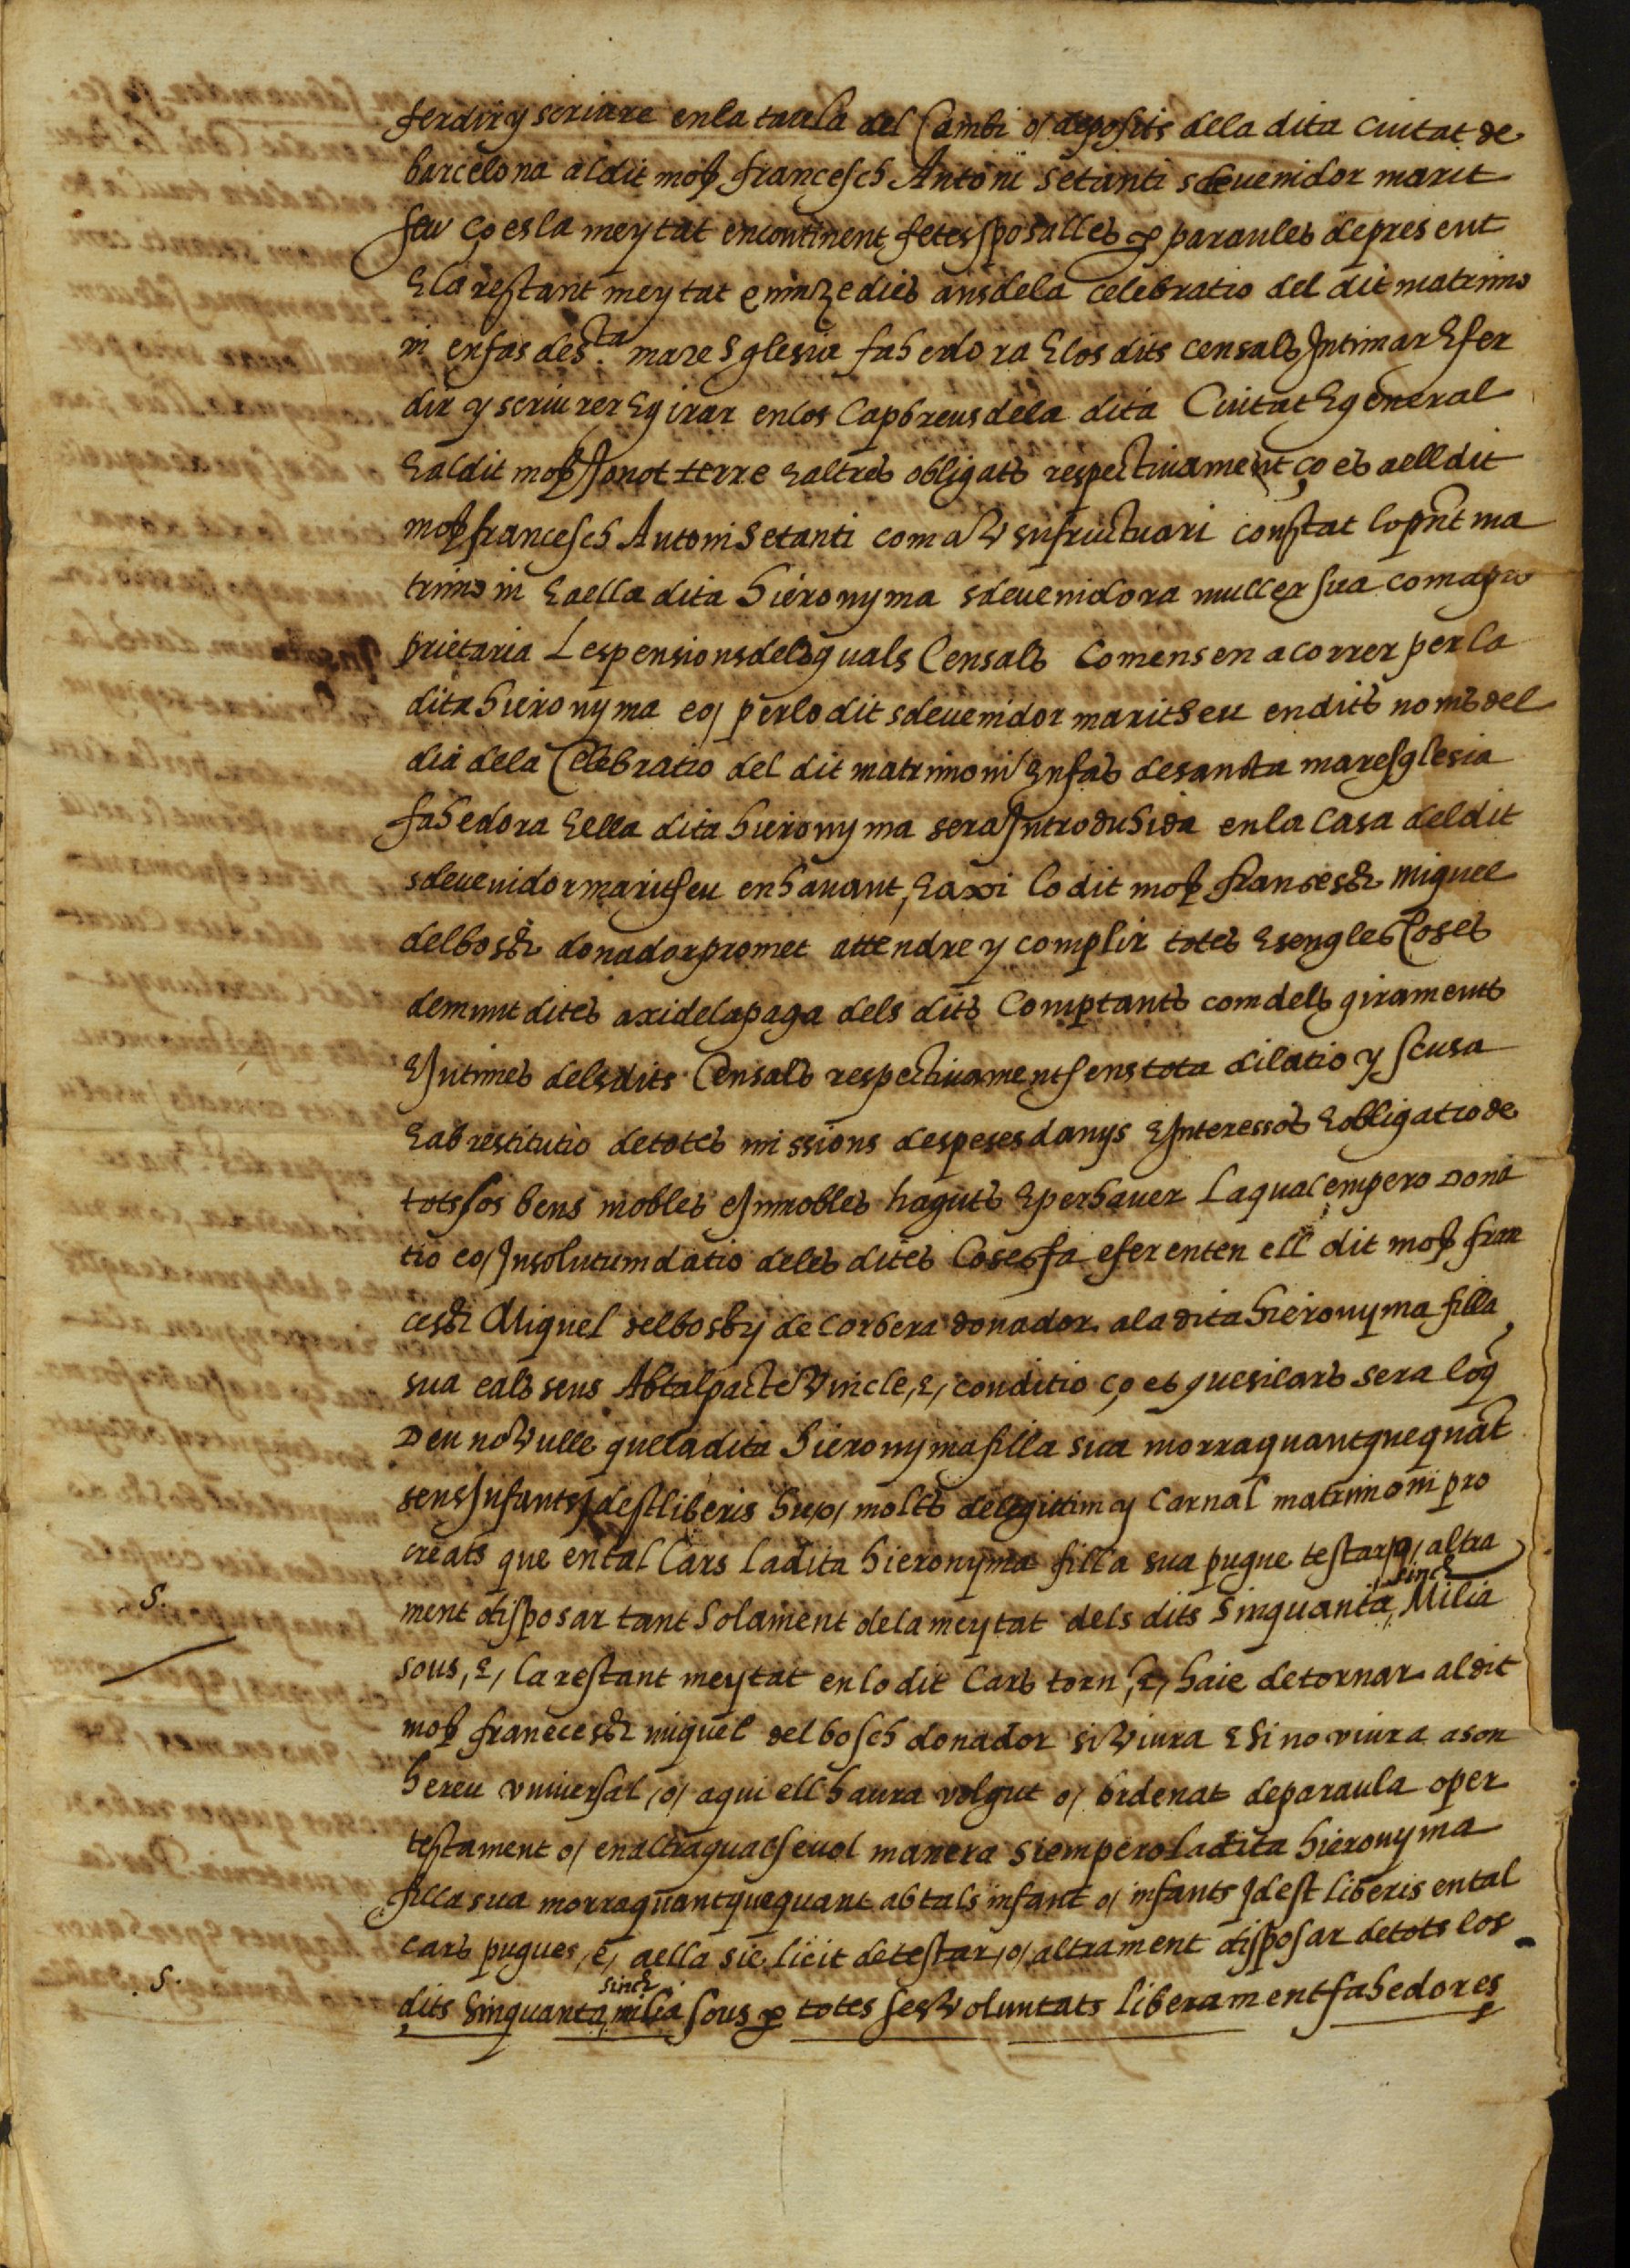 fer dir y scriure en la taula del Cambi o deposits dela dita ciutat de
barcelona al dit moss francesch Antoni setanti sdeuenidor marit
seu ço es la meytat encontinent fetes sposalles p paraules de present
E la restant meytat quinze dies ans dela celebratio del dit matrimo
ni enfas de s.ta mare Sglesia fahedora E los dits censals Intimar E fer
dir y scriurer E girar en los Capbreus dela dita Ciutat E general
E al dit moss Jonot terre E altres obligats respectiuament ço es a ell dit
moss francesch Antoni Setanti com a Vsufructuari constat lo pnt ma
trimoni E a ella dita hieronyma sdeuenidora muller sua com a pro
prietaria Les pensions dels quals Censals Comensen a correr per la
dita hieronyma eo per lo dit sdeuenidor marit seu en dits noms del
dia dela Celebratio del dit matrimoni Enfas de sancta mare sglesia
fahedora E ella dita hieronyma sera Introduhida en la casa del dit
sdeuenidor marit seu en hauant, E axi lo dit moss fransesch miquel
delbosch donador promet attendre y complir totes E sengles Coses
demunt dites axi de la paga dels dits Comptants com dels giraments
E Intimes dels dits Censals respectiuament sens tota dilatio y scusa
E ab restitutio de totes missions despeses danys E Interessos E obligatio de
tots sos bens mobles e Inmobles haguts E per hauer La qual empero Dona
tio eo Insolutumdatio de les dites Coses fa e fer enten ell dit moss fran
cesch Miquel delbosch y de corbera donador a la dita hieronyma filla
sua e als seus Ab tal pacte Vincle, E, conditio ço es que si lo cars sera loq
Deu no Vulle que la dita hieronyma filla sua morra quant que quant
sens Infants Idest liberis hu, o, molts de legittim y Carnal matrimoni pro
creats que en tal Cars la dita hieronyma filla sua pugue testar, o, altra
ment disposar tant solament de la meytat dels dits Sinquanta sinch Milia
s.
sous, E, la restant meytat en lo dit Cars torn, E, haie de tornar al dit
moss francesch miquel delbosch donador si Viura E si no viura a son
hereu vniuersal, o, a qui ell haura volgut o, ordenat de paraula o per
testament o, en altra qualseuol manera si empero la dita hieronyma
filla sua morra quant que quant ab tals infant o, infants Idest liberis en tal
cars pugues, e, a ella sie licit de testar, o, altrament disposar de tots los
s.
dits Sinquanta sinch milia sous p totes ses Voluntats liberament fahedores